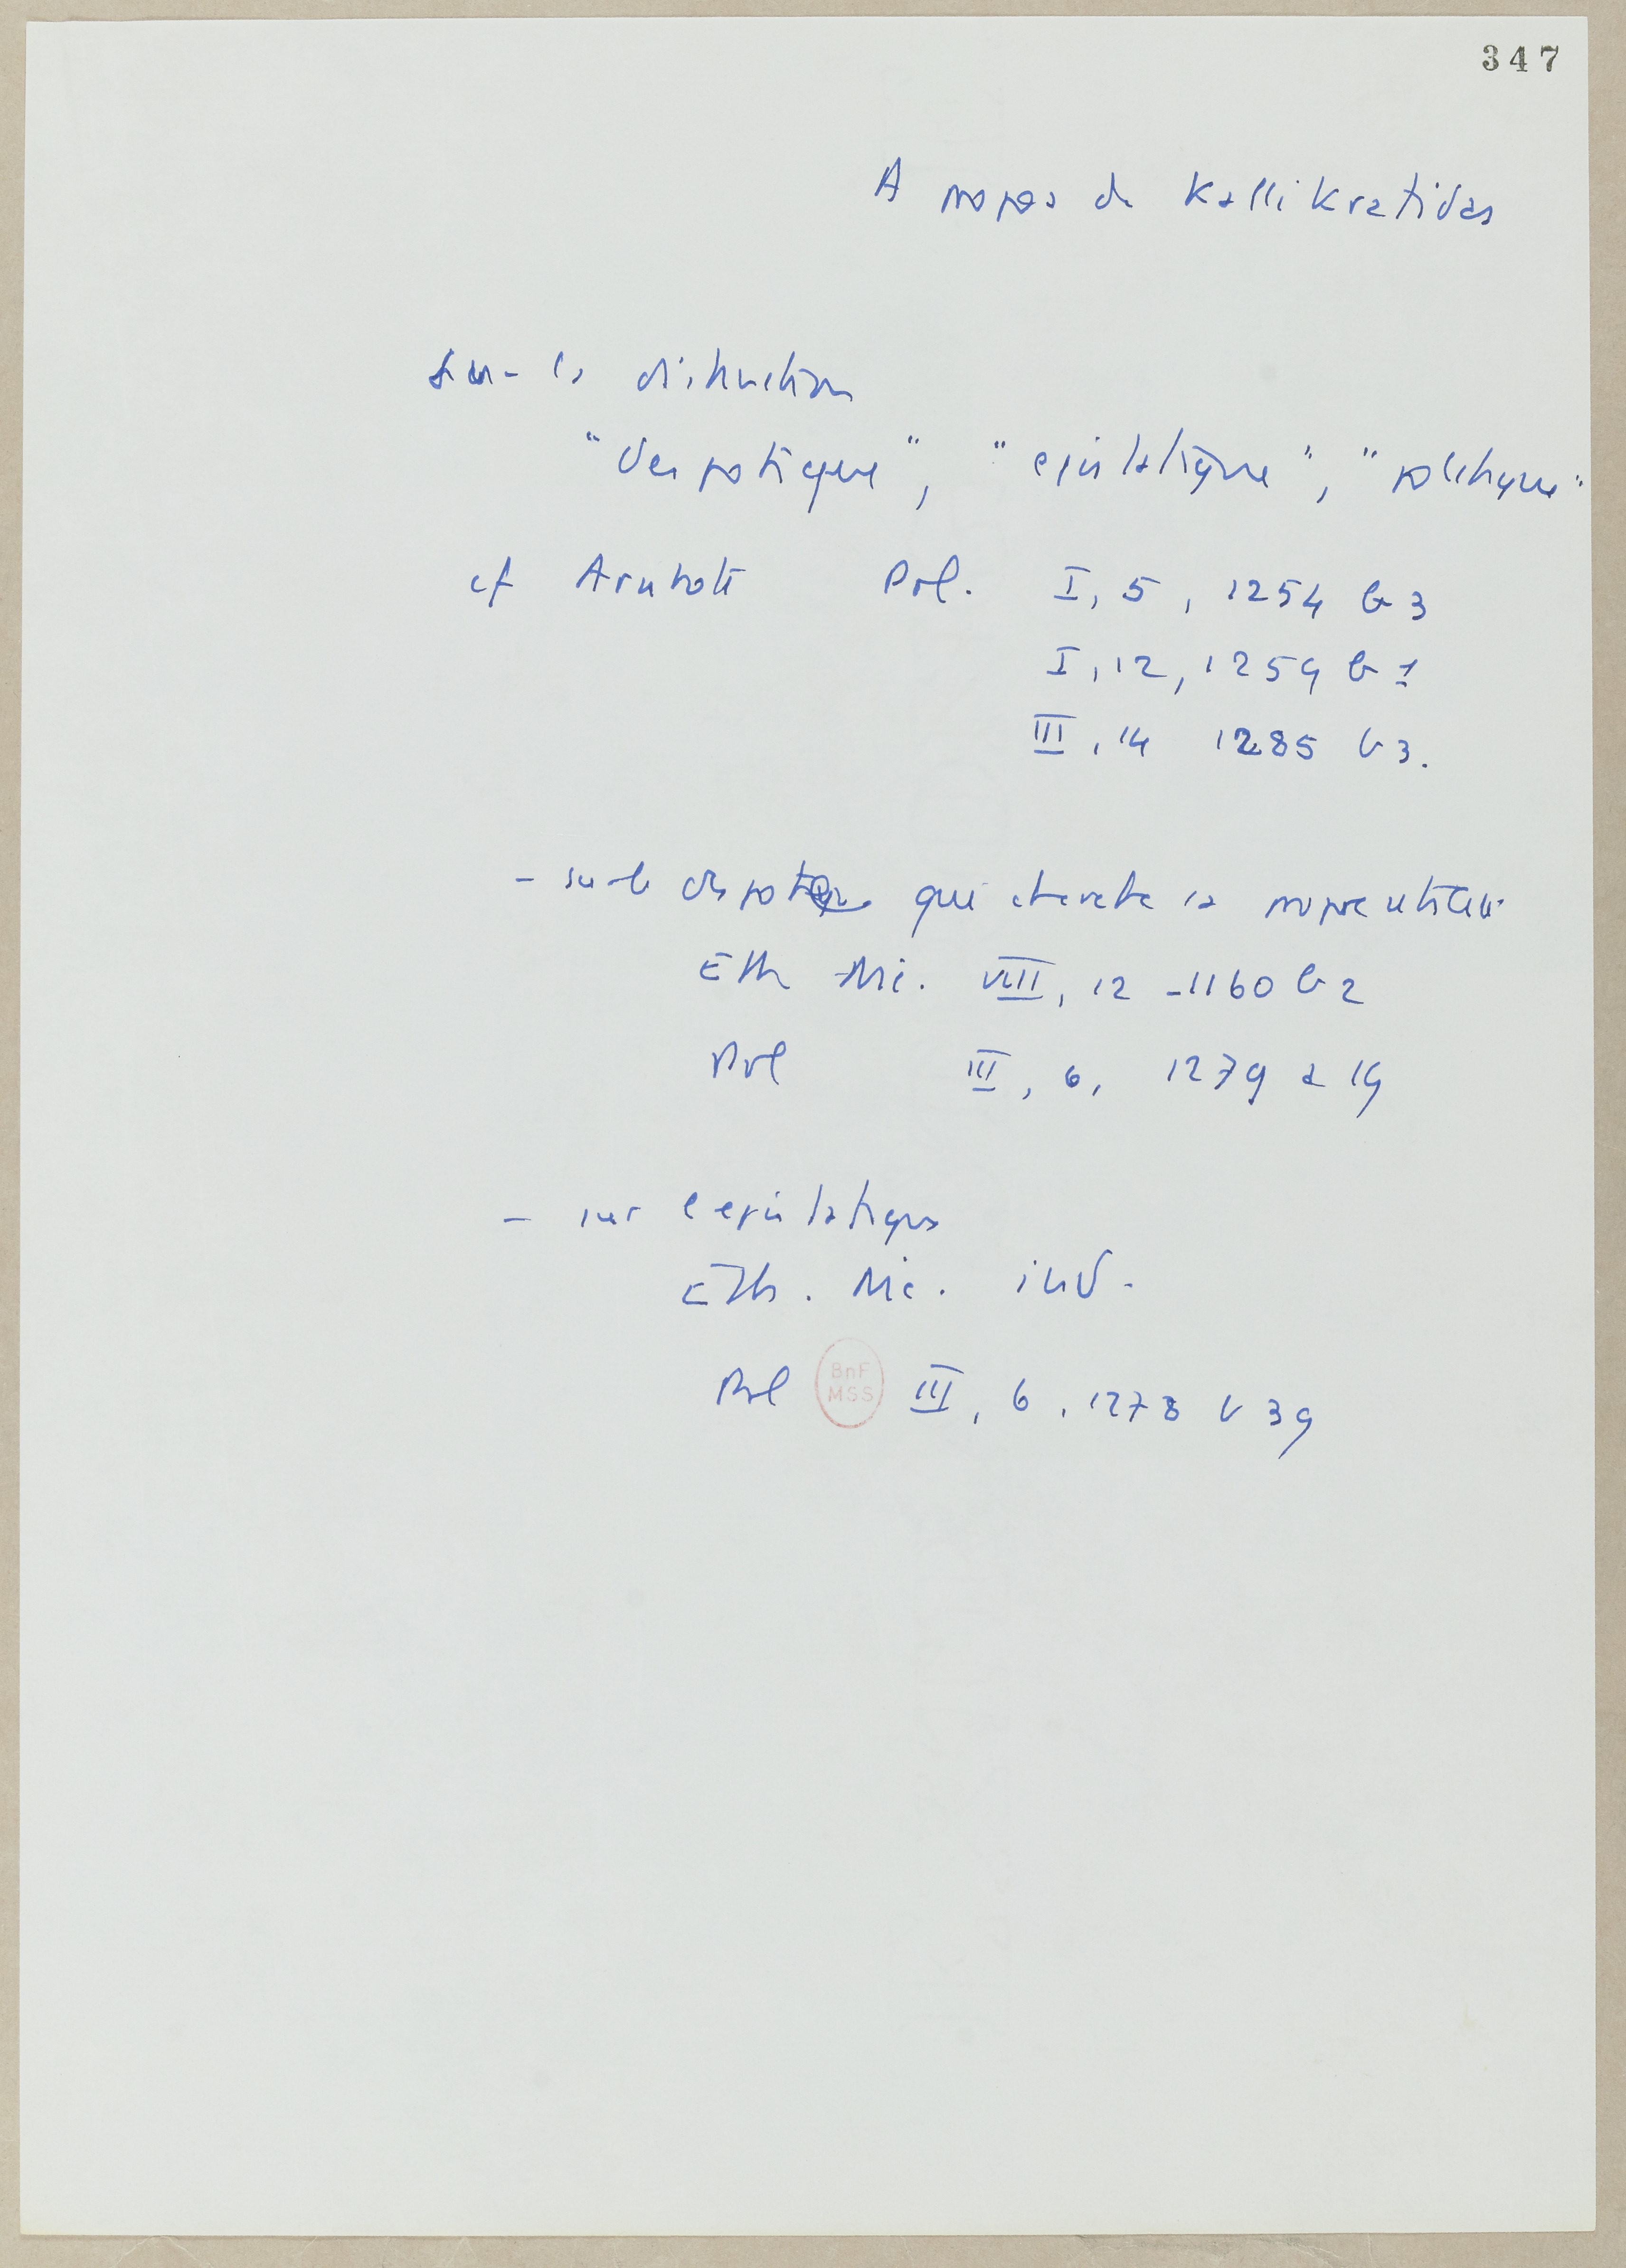 347
A propos de Kallikratidas
sur la distinction
"despotique", "epistatique", "politique"
cf Aristote Pol. I, 5, 1254 b 3
I, 12, 1259 b 1
III, 14 1285 b 3.
- sur le despote qui cherche sa propre utilité
Eth Nic. VIII, 12 - 1160 b 2
Pol III, 6, 1279 a 19
- sur l'epistatique
Eth. Nic. ibid.
Pol III, 6, 1278 b 39
BnF
MSS